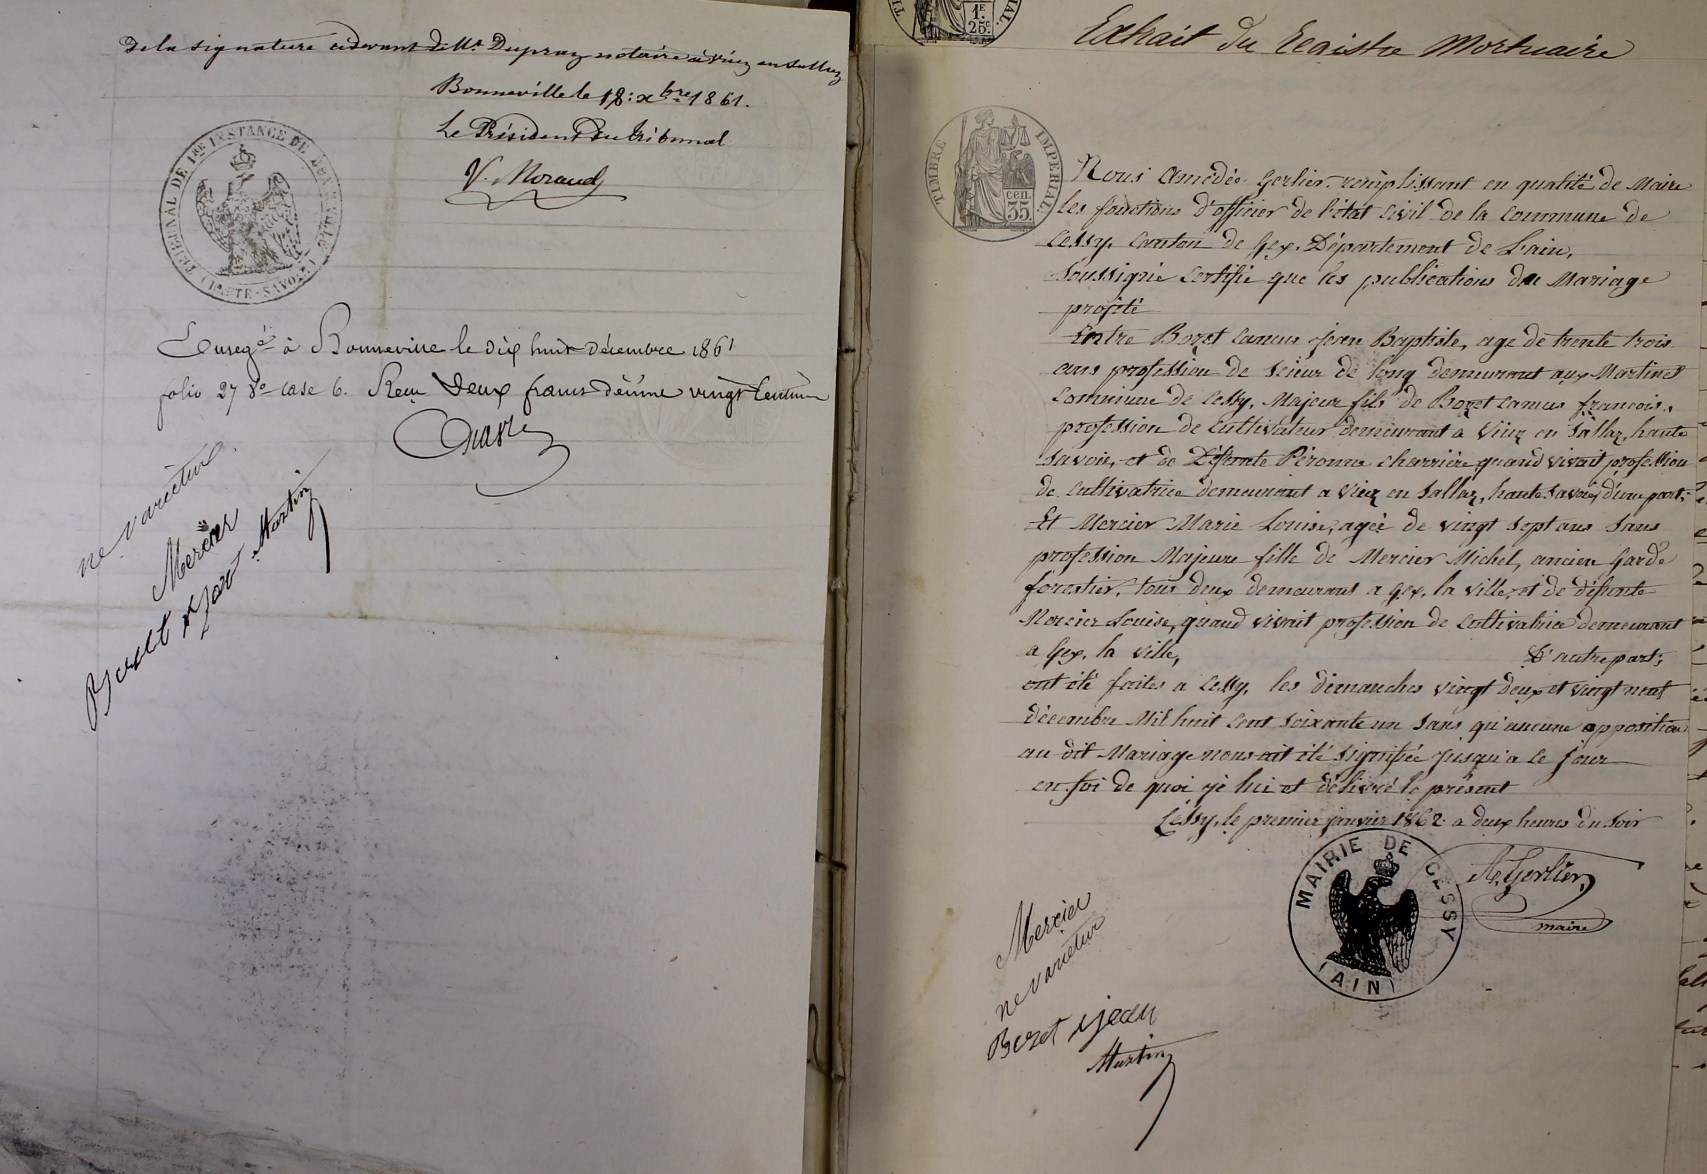 De la signature cidevant de Mr Dupraz notaire à Viuz en Sallaz
Bonneville le 18 : xbre 1861.
Le Président du tribunal
V. Morand
TRIBUNAL DE 1re INSTANCE DE BONNEVILLE
(HAUTE-SAVOIE)
Enregé à Bonneville le dix huit décembre 1861
folio 27 Vo case 6. Reçu deux francs décime vingt centimes
ne varietur
Mercier
Bozet Jean Martin
1F.
25c
Extrait du Registre Mortuaire
TIMBRE IMPERIAL
35 cen.
Nous Amédée Gerlier remplissant en qualité de Maire
les fonctions d'officier de l'état civil de la commune de
Cessy, Canton de Gex, Département de l'ain,
Soussigné certifie que les publications du Mariage
projeté
Entre Bozet Camus Jean Baptiste, age de trente trois
ans profession de scieur de long demeurant aux Martinet
Commune de Cessy, Majeur fils de Bozet Camus françois,
profession de cultivateur demeurant a Viuz en Sallaz, haute
Savoie, et de Défunte Péronne Charrière quand vivait profession
de cultivatrice demeurant a Viuz en Sallaz, haute Savoie, d'une part;
Et Mercier Marie Louise, agée de vingt sept ans sans
profession Majeure fille de Mercier Michel, ancien Garde
forestier, tous deux demeurant a Gex, la ville, et de défunte
Mercier Louise, quand vivait profession de Cultivatrice demeurant
a Gex, la ville, D'autre part;
ont été faites a Cessy, les dimanches vingt deux et vingt neuf
décembre Mil huit cent soixante un sans qu'aucune opposition
au dit Mariage nous ait été signifiée jusqu'a ce jour
en foi de quoi jé lui et délivré le présent
Cessy, le premier janvier 1862 a deux heures du soir
MAIRIE DE CESSY
(AIN)
A. Gerlier,
maire
Mercier
ne varietur
Bozet Jean
Martin